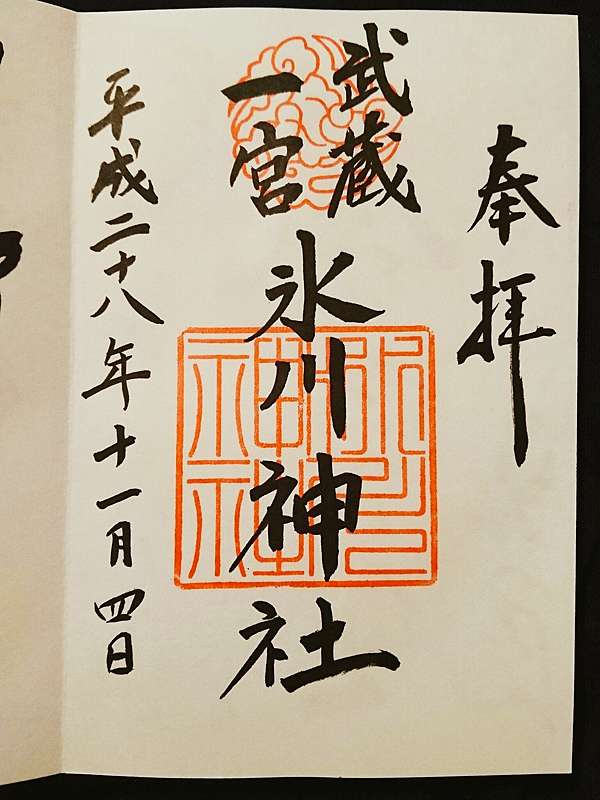 奉拝
武蔵
一宮
氷川神社
平成二十八年十一月四日